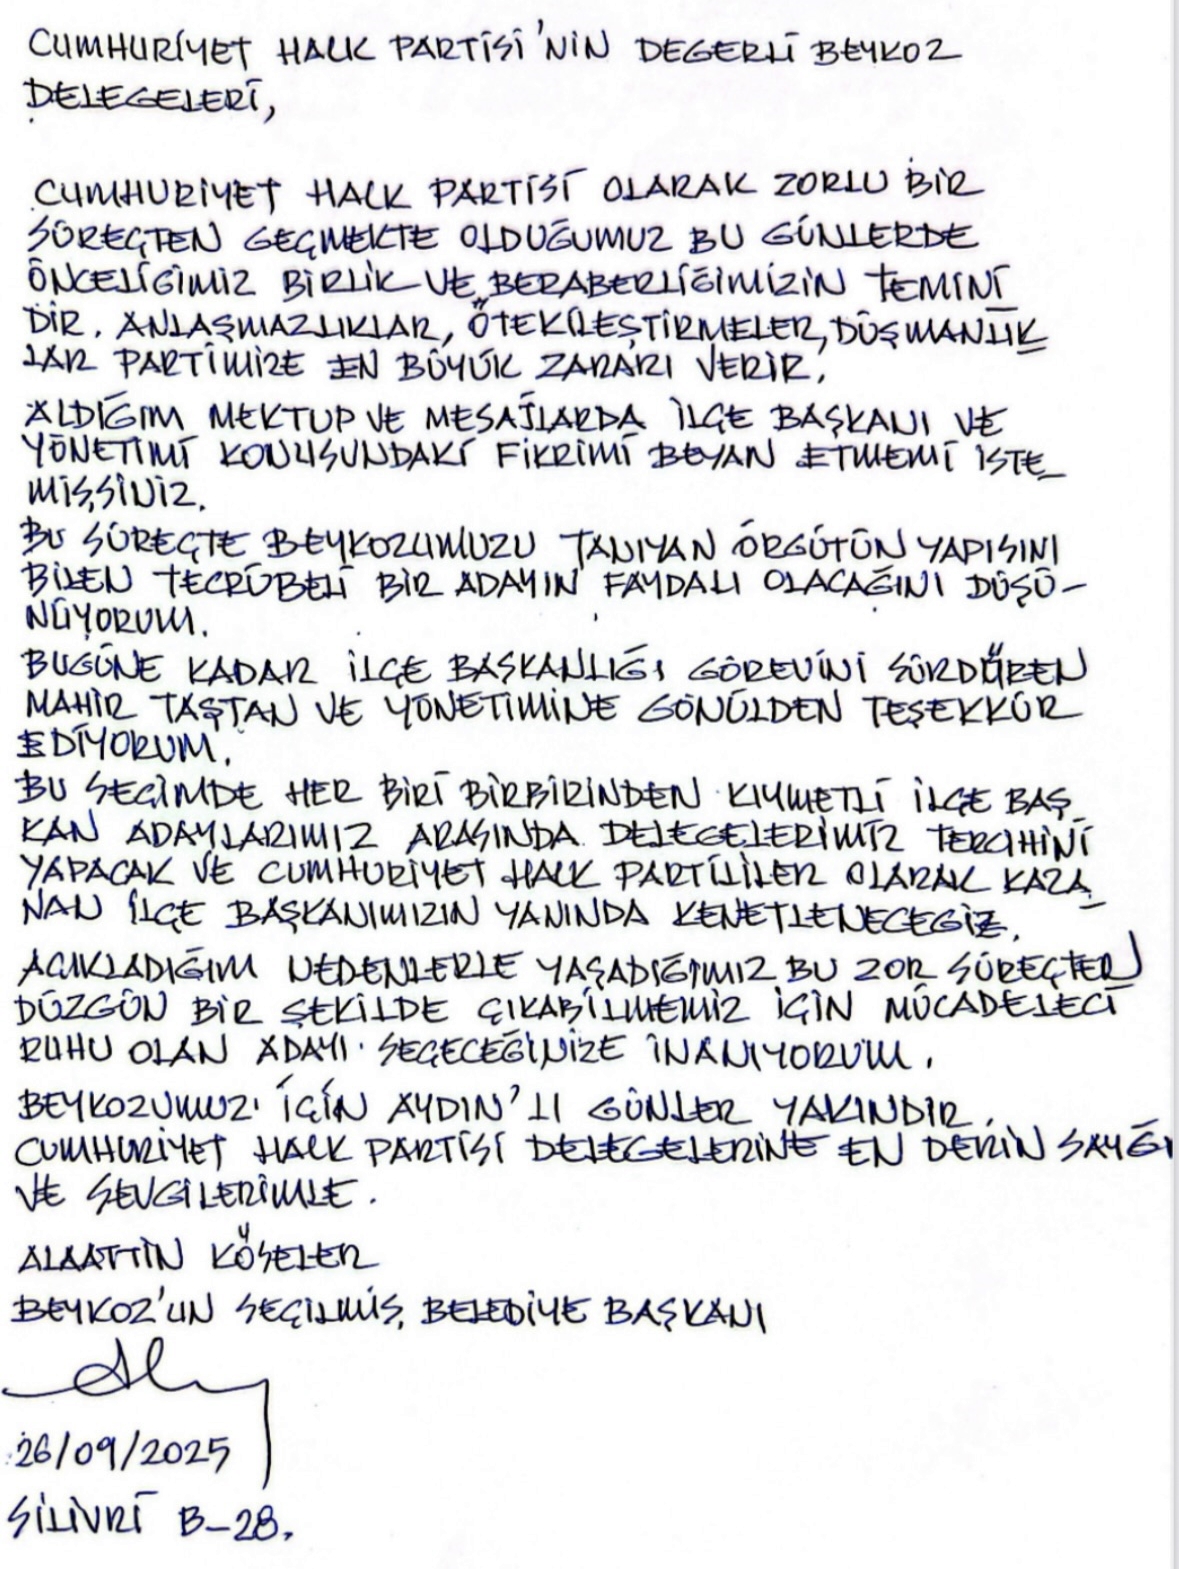 CUMHURİYET HALK PARTİSİ'NİN DEGERLİ BEYKOZ
DELEGELERİ,
CUMHURİYET HALK PARTİSİ OLARAK ZORLU BİR
SÜREÇTEN GEÇMEKTE OLDUĞUMUZ BU GÜNLERDE
ÖNCELİĞİMİZ BİRLİK VE BERABERLİĞİMİZİN TEMİNİ
DİR. ANLAŞMAZLIKLAR, ÖTEKİLEŞTİRMELER, DÜŞMANLIK
LAR PARTİMİZE EN BÜYÜK ZARARI VERİR.
ALDIĞIM MEKTUP VE MESAJLARDA İLÇE BAŞKANI VE
YÖNETİMİ KONUSUNDAKİ FİKRİMİ BEYAN ETMEMİ İSTE_
MİŞSİNİZ.
BU SÜREÇTE BEYKOZUMUZU TANIYAN ÖRGÜTÜN YAPISINI
BİLEN TECRÜBELİ BİR ADAYIN FAYDALI OLACAĞINI DÜŞÜ-
NÜYORUM.
BUGÜNE KADAR İLÇE BAŞKANLIĞI GÖREVİNİ SÜRDÜREN
MAHİR TAŞTAN VE YÖNETİMİNE GÖNÜLDEN TEŞEKKÜR
EDİYORUM.
BU SEÇİMDE HER BİRİ BİRBİRİNDEN KIYMETLİ İLÇE BAŞ_
KAN ADAYLARIMIZ ARASINDA DELEGELERİMİZ TERCİHİNİ
YAPACAK VE CUMHURİYET HALK PARTİLİLER OLARAK KAZA_
NAN İLÇE BAŞKANIMIZIN YANINDA KENETLENECEGİZ.
AÇIKLADIĞIM NEDENLERLE YAŞADIĞIMIZ BU ZOR SÜREÇTEN
DÜZGÜN BİR ŞEKİLDE ÇIKABİLMEMİZ İÇİN MÜCADELECİ
RUHU OLAN ADAYI SEÇECEĞİNİZE İNANIYORUM.
BEYKOZUMUZ İÇİN AYDIN'LI GÜNLER YAKINDIR.
CUMHURİYET HALK PARTİSİ DELEGELERİNE EN DERİN SAYGI
VE SEVGİLERİMLE.
ALAATTİN KÖSELER
BEYKOZ'UN SEÇİLMİŞ BELEDİYE BAŞKANI
26/09/2025
SİLİVRİ B-28.